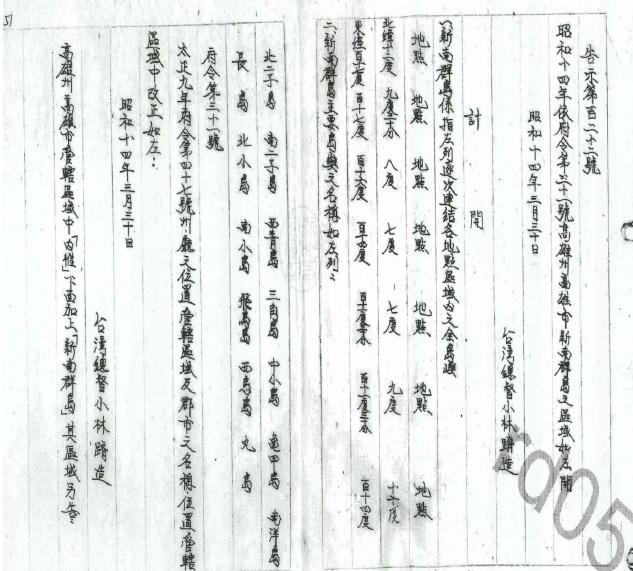 告示第百二十二號
昭和十四年依府令第三十一號高雄州高雄市新南群島之區域如左開
昭和十四年三月三十日
台湾總督小林躋造
計開
一、新南群島係指左列逐次連結各地點區域內之全島嶼
地點 地點 地點 地點 地點 地點 地點
北緯十二度 九度三十分 八度 七度 七度 九度 十二度
東經百十七度 百十七度 百十六度 百十四度
二、新南群島主要島嶼之名稱如左列:
北二子島 南二子島 西青島 三角島 中小島 龜甲島 南洋島
長島 北小島 南小島 飛鳥島 西鳥島 丸島
府令第三十一號
太正九年府令第四十七號州、廳之位置、管轄區域及郡市之名稱、位置、管轄
區域中改正如左:
昭和十四年三月三十日
台湾總督小林躋造
高雄州高雄市管轄區域中「內惟」下面加上「新南群島」其區域另告:
rd05
51